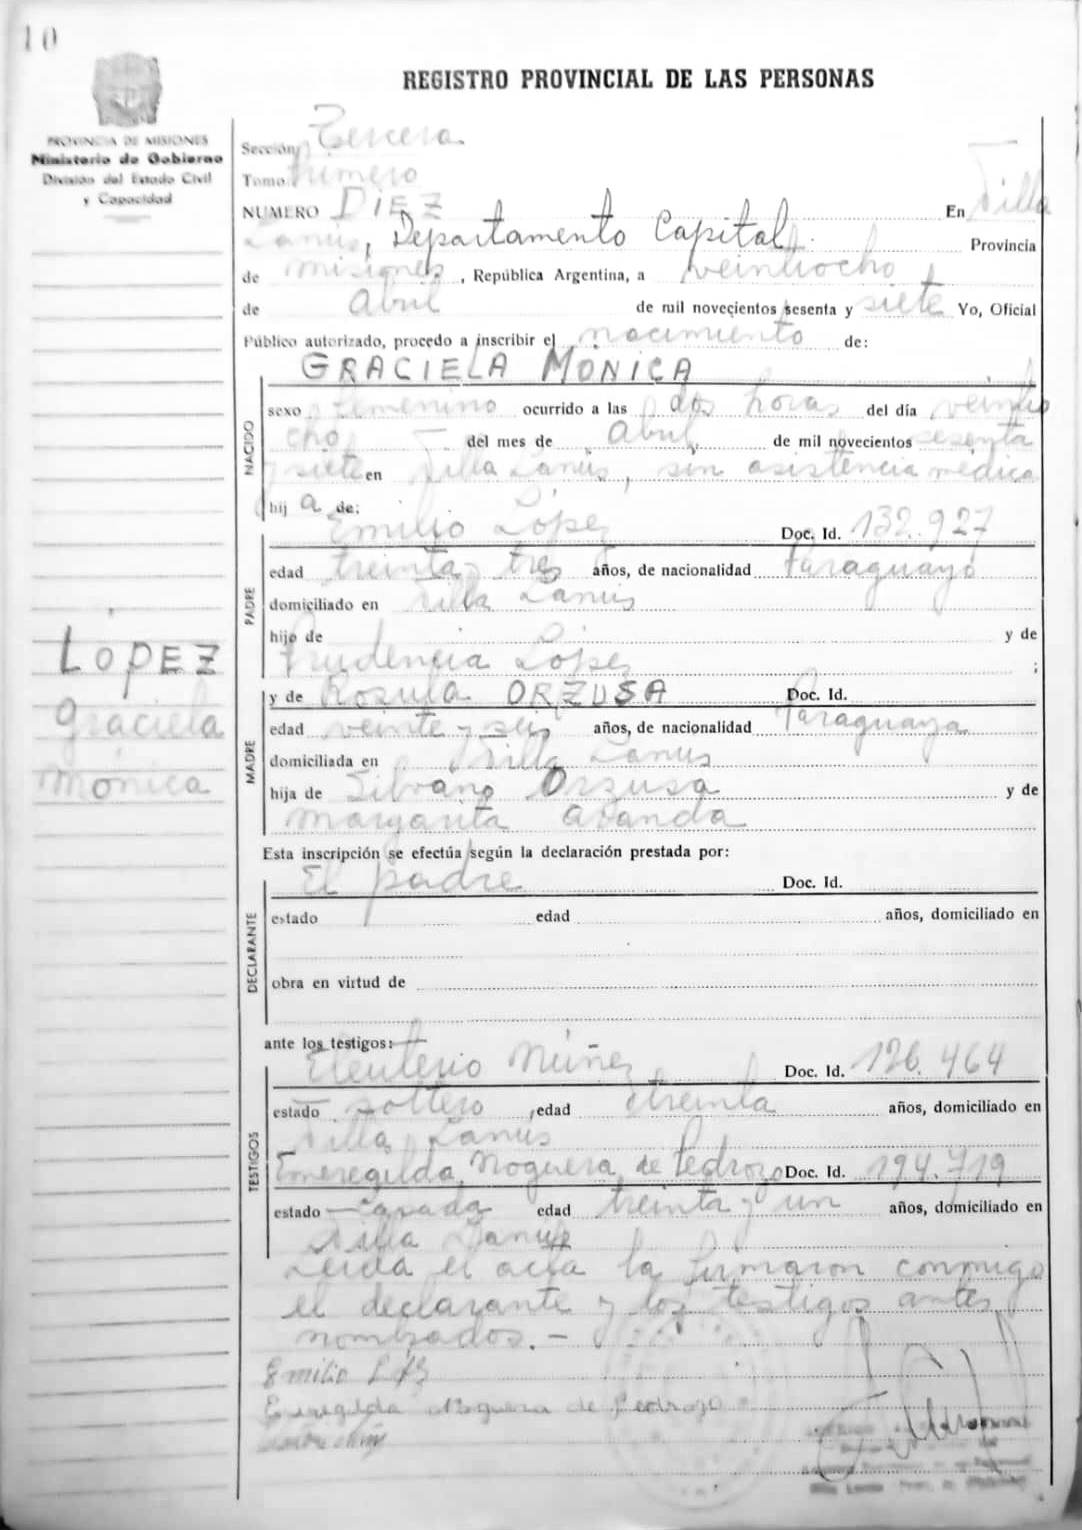 10
PROVINCIA DE MISIONES
Ministerio de Gobierno
División del Estado Civil
y Capacidad
REGISTRO PROVINCIAL DE LAS PERSONAS
Sección Tercera
Tomo Primero
NUMERO DIEZ En Villa
Lanús, Departamento Capital Provincia
de Misiones, República Argentina, a veintiocho
de Abril de mil novecientos sesenta y siete Yo, Oficial
Público autorizado, procedo a inscribir el nacimiento de:
GRACIELA MÓNICA
NACIDO
sexo femenino ocurrido a las dos horas del día veintio
cho del mes de Abril, de mil novecientos sesenta
y siete en Villa Lanús, sin asistencia médica
hij a de:
Emilio López Doc. Id. 132.927
PADRE
edad treinta y tres años, de nacionalidad Paraguayo
domiciliado en Villa Lanús
hijo de y de
Prudencia López ;
LÓPEZ
Graciela
Mónica
y de Rosula ORZUSA Doc. Id.
MADRE
edad veinte y seis años, de nacionalidad Paraguaya
domiciliada en Villa Lanús
hija de Silvano Orzusa y de
Margarita Aranda
Esta inscripción se efectúa según la declaración prestada por:
El padre Doc. Id.
DECLARANTE
estado edad años, domiciliado en
obra en virtud de
ante los testigos:
Eleuterio Núñez Doc. Id. 126.464
TESTIGOS
estado soltero, edad treinta años, domiciliado en
Villa Lanús
Emeregilda Noguera de Pedrozo Doc. Id. 194.719
estado Casada edad treinta y un años, domiciliado en
Villa Lanús
Leída el acta la firmaron conmigo
el declarante y los testigos antes
nombrados. -
Emilio
Noguera de Pedrozo